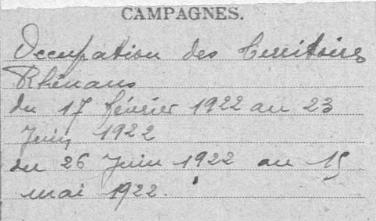 CAMPAGNES.
Occupation des Territoires
Rhénans
du 17 février 1922 au 23
Juin 1922
du 26 Juin 1922 au 15
mai 1922.